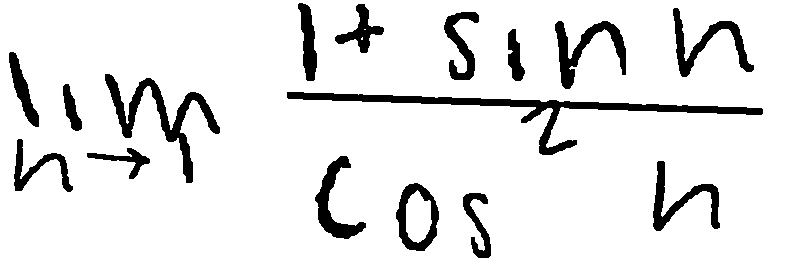 lim n→1 \frac{1 + sin n}{cos^2 n}